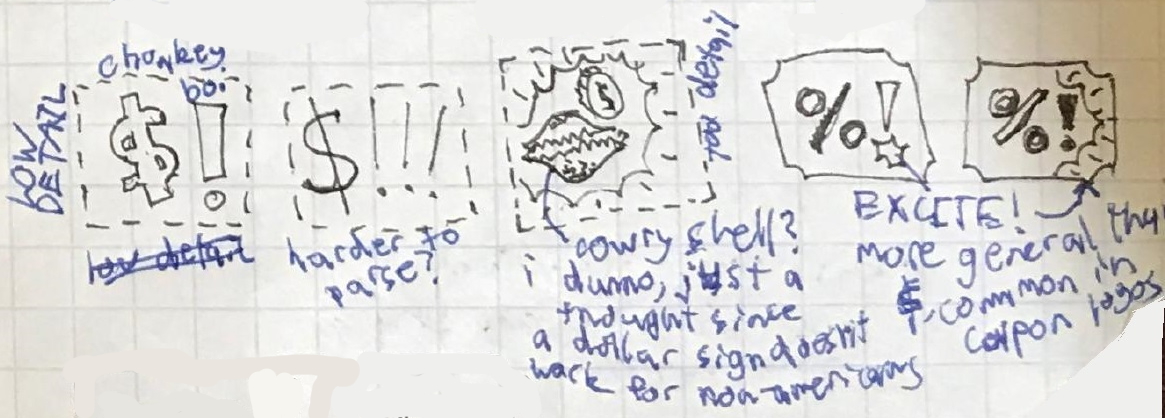 LOW
DETAIL
chonkey
boi
$ !
low detail
$ !!!
harder to
parse?
$
too detail
cowry shell?
i dunno, just a
thought since
a dollar sign doesn't
work for non-americans
%!
%!
EXCITE!
more general than
$, common in
coupon logos